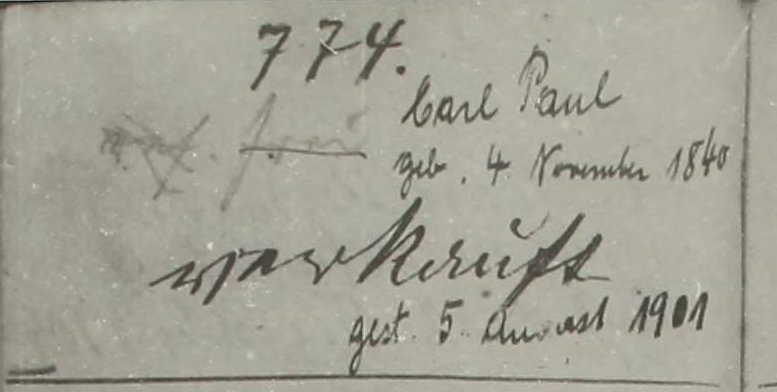 774.
Carl Paul
frei
geb. 4 November 1840
verkauft
gest. 5. August 1901